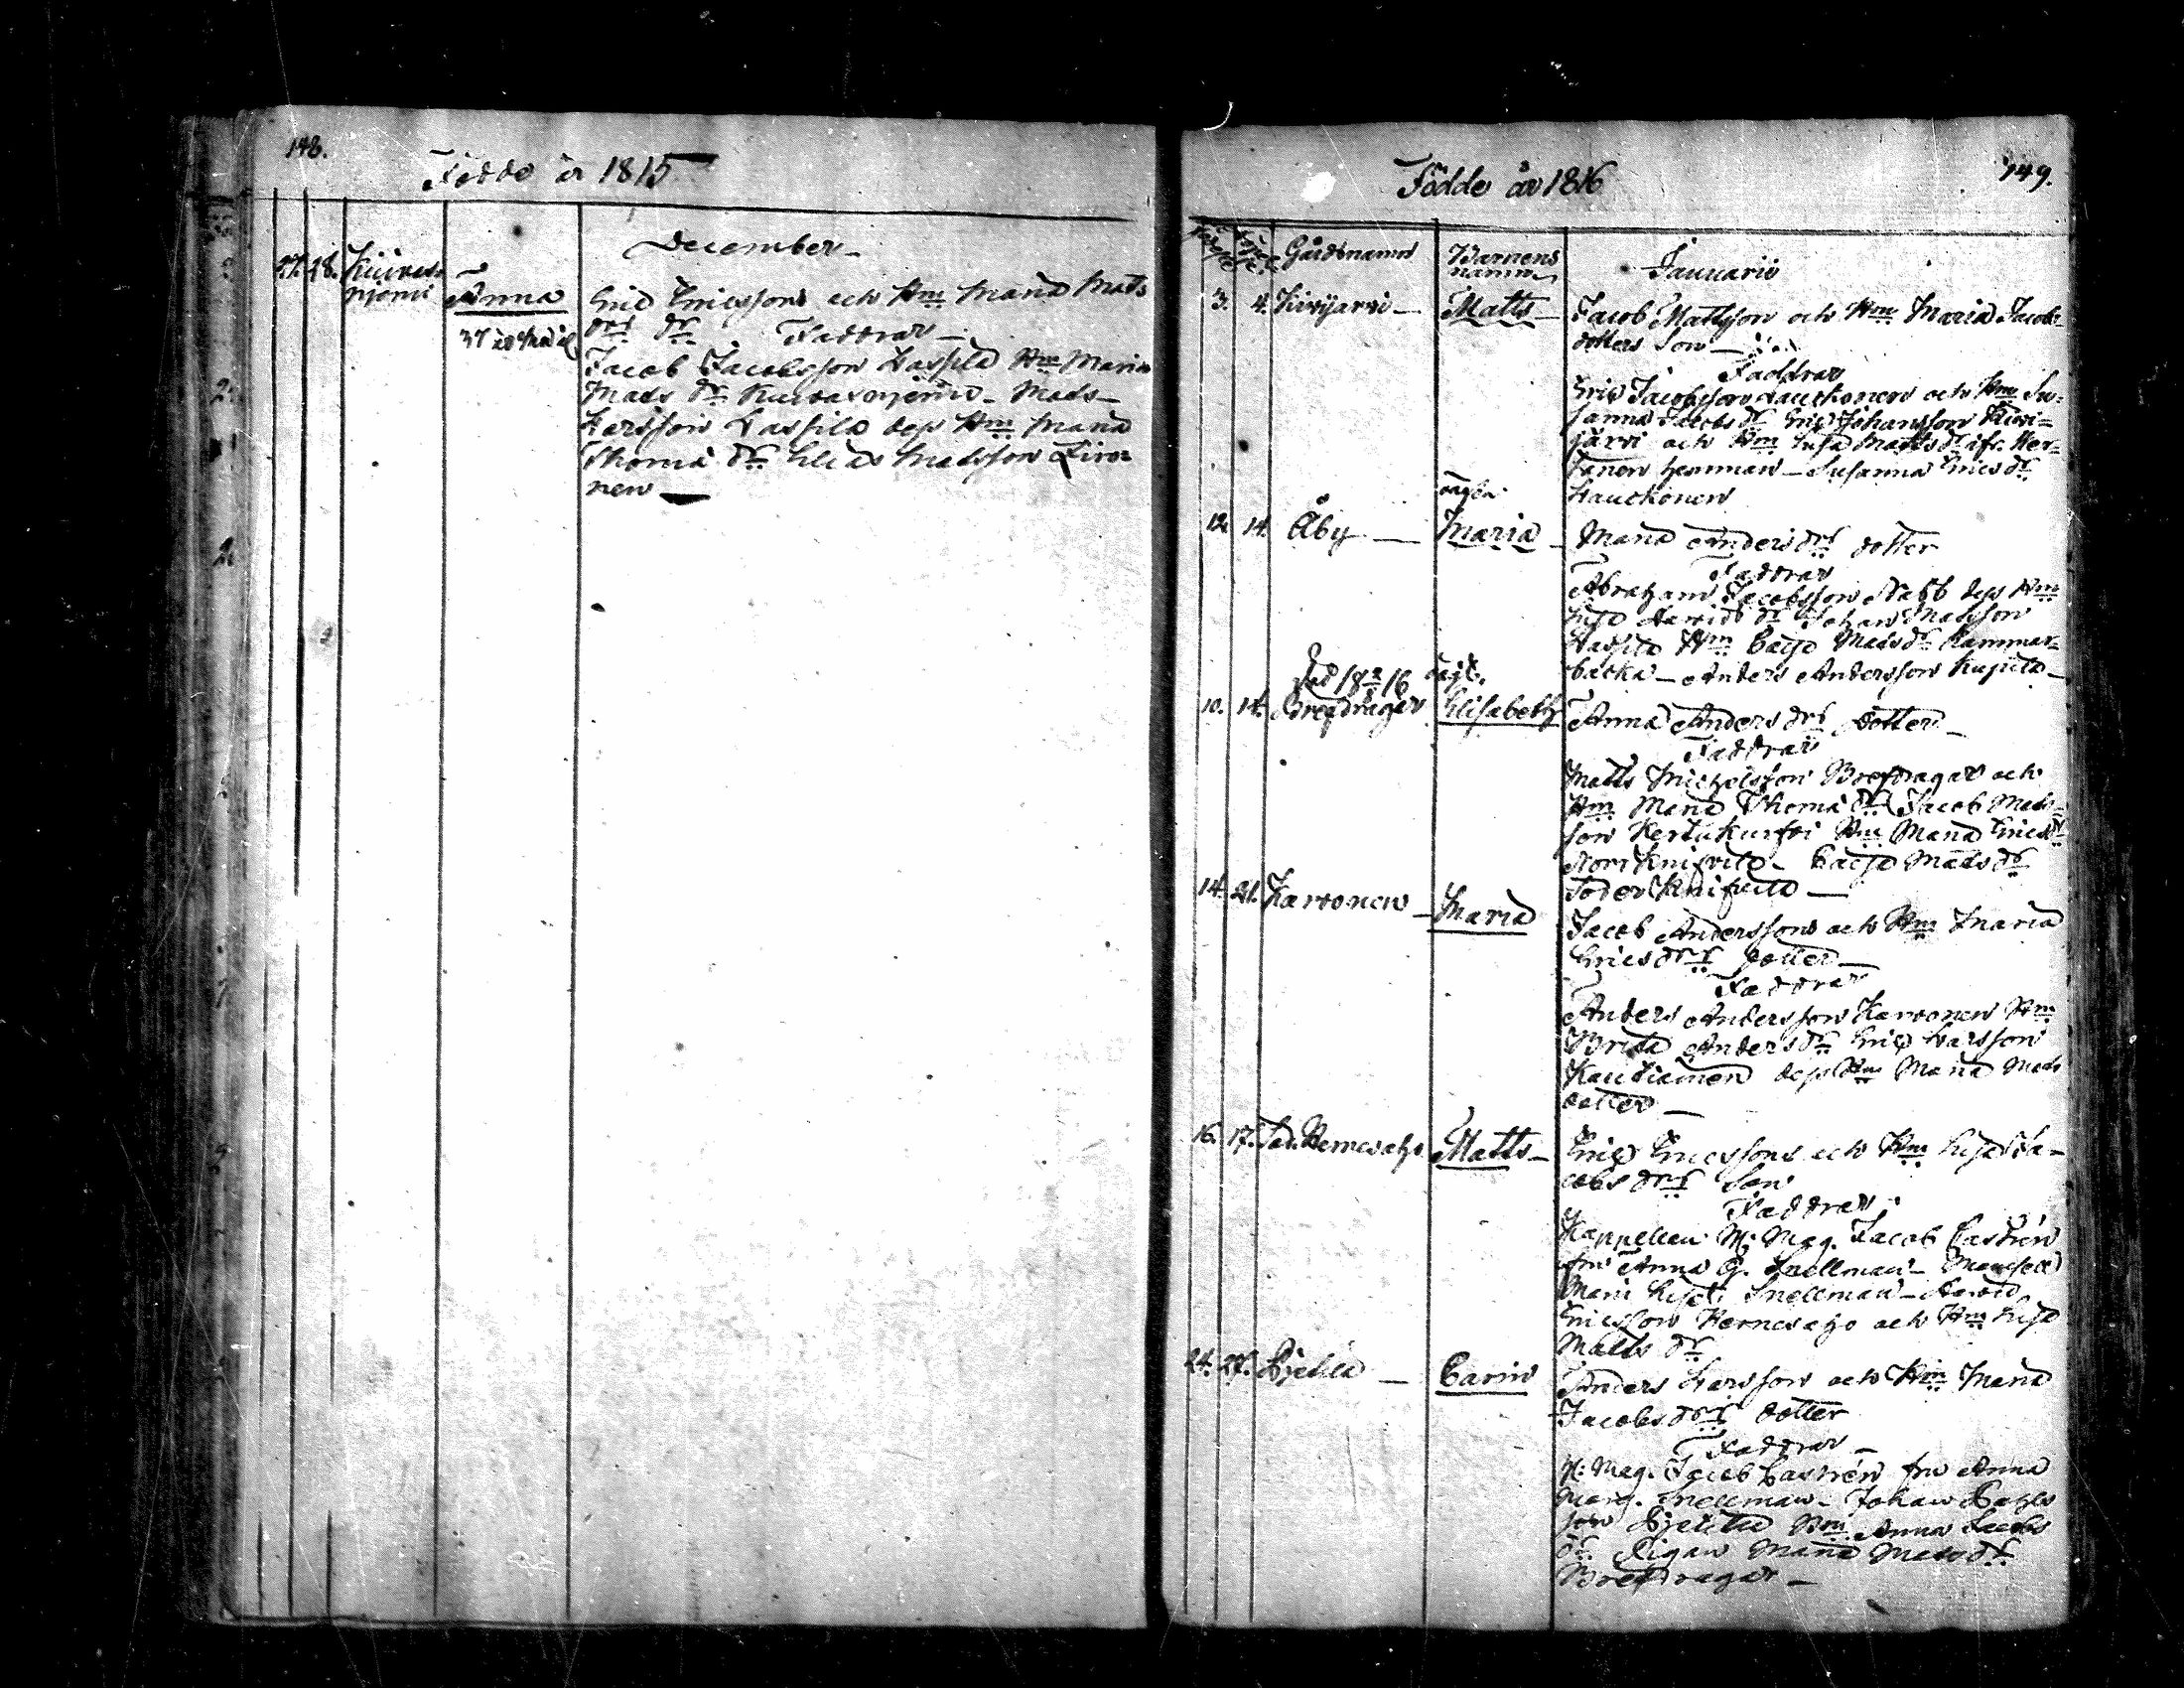 148.
Födde år 1815
December
27. 28. Kuivas-
niemi
Anna
Eric Ericsson och Hu Maria Mats
drs dr Faddrar
Jacob Jacobsson Lassila Hu Maria
Mads dr Kuivasniemi - Mads
Larsson Lassila dess Hu Maria
Thomæ dr Elias Madsson
nen
149.
Födde år 1816
Gårdsnamn
Barnens
namn
Januarii
3. 4. Kivijärvi - Matts - Jacob Mattsson och Hu Maria Jacobs
dotters Son -
Faddrar
Eric Jacobsson Lauckonen och Hu Su-
sanna Jacobs dr Eric Johansson Kivi-
järvi och Hu Lisa Matts dr
hemman - Susanna Erics dr
Lauckonen
oägta
12. 14. Åby - Maria - Maria Anders drs dotter
Faddrar
Abraham Jacobsson Stabb dess Hu
Lisa dr Johan Madsson
Lassila Hu Caisa Mads dr Kammar-
backa - Anders Andersson Kujala -
Död 18 16 oägt.
10. 14. Brefdragar Elisabeth Anna Anders drs dotter -
Faddrar
Matts Michelsson Brefdragar och
Hu Maria Thomæ dr Jacob Mads-
son Hu Maria Erics dr
Norr Knifsila - Caisa Mads dr
Söder Knifsila -
14. 21. Karvonen - Maria Jacob Anderssons och Hu Maria
Erics drs dotter -
Faddrar
Anders Andersson Karvonen Hu
Brita Anders dr Eric Larsson
Kautiainen dess Hu Maria Mads
dotter -
16. 17. Hernesaho Matts - Eric Ericssons och Hu Lisa Ja-
cobs drs Son
Faddrar
Kappellan H: Mag. Jacob Castrén
fru Anna G. Snellman - Mamsell
Maria Lisa Snellman -
Ericsson Hernesaho och Hu Lisa
Matts dr
24. Bjelila - Carin Anders Larsson och Hu Maria
Jacobs drs dotter
Faddrar -
H: Mag. Jacob Castrén fru Anna
Snellman - Johan
son Bjelila Hu Anna Jacobs
dr Maria Mats dr
Brefdragar -